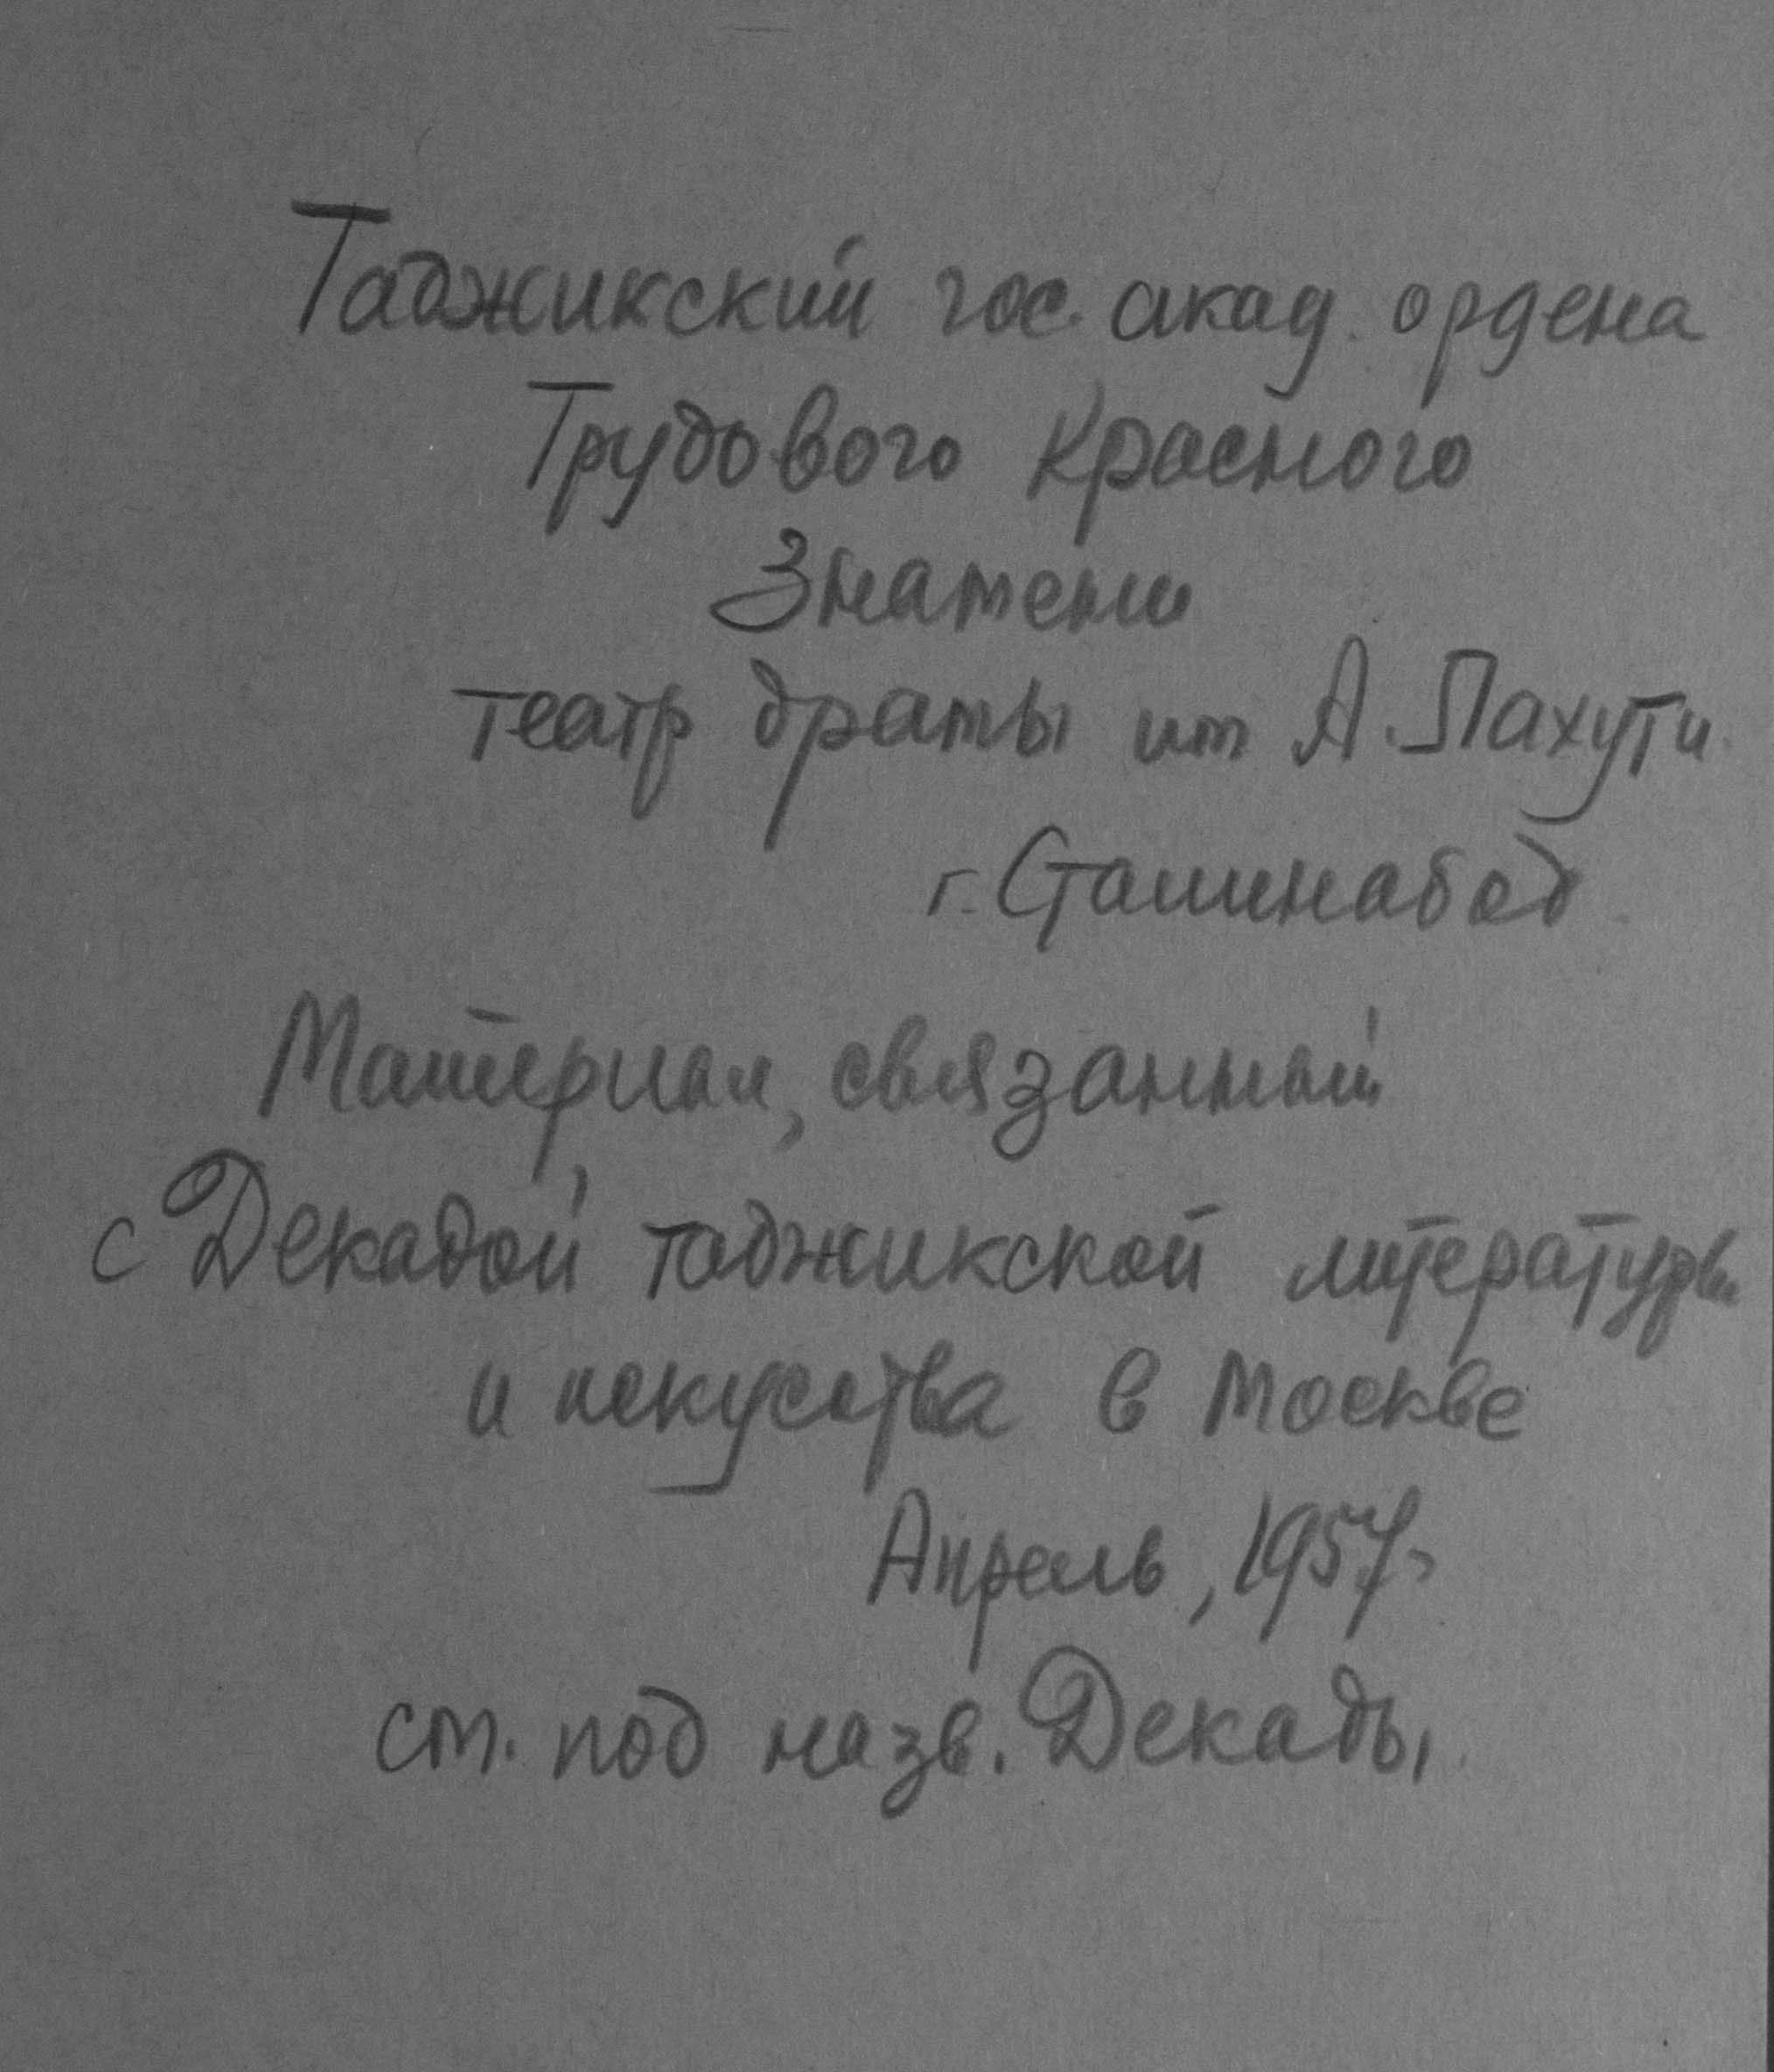 Таджикский гос. акад. ордена
Трудового Красного
Знамени
театр драмы им А. Лахути
г. Сталинабад
Материал, связанный
с Декадой таджикской литературы
и искусства в Москве
Апрель, 1957г
см. под назв. Декады